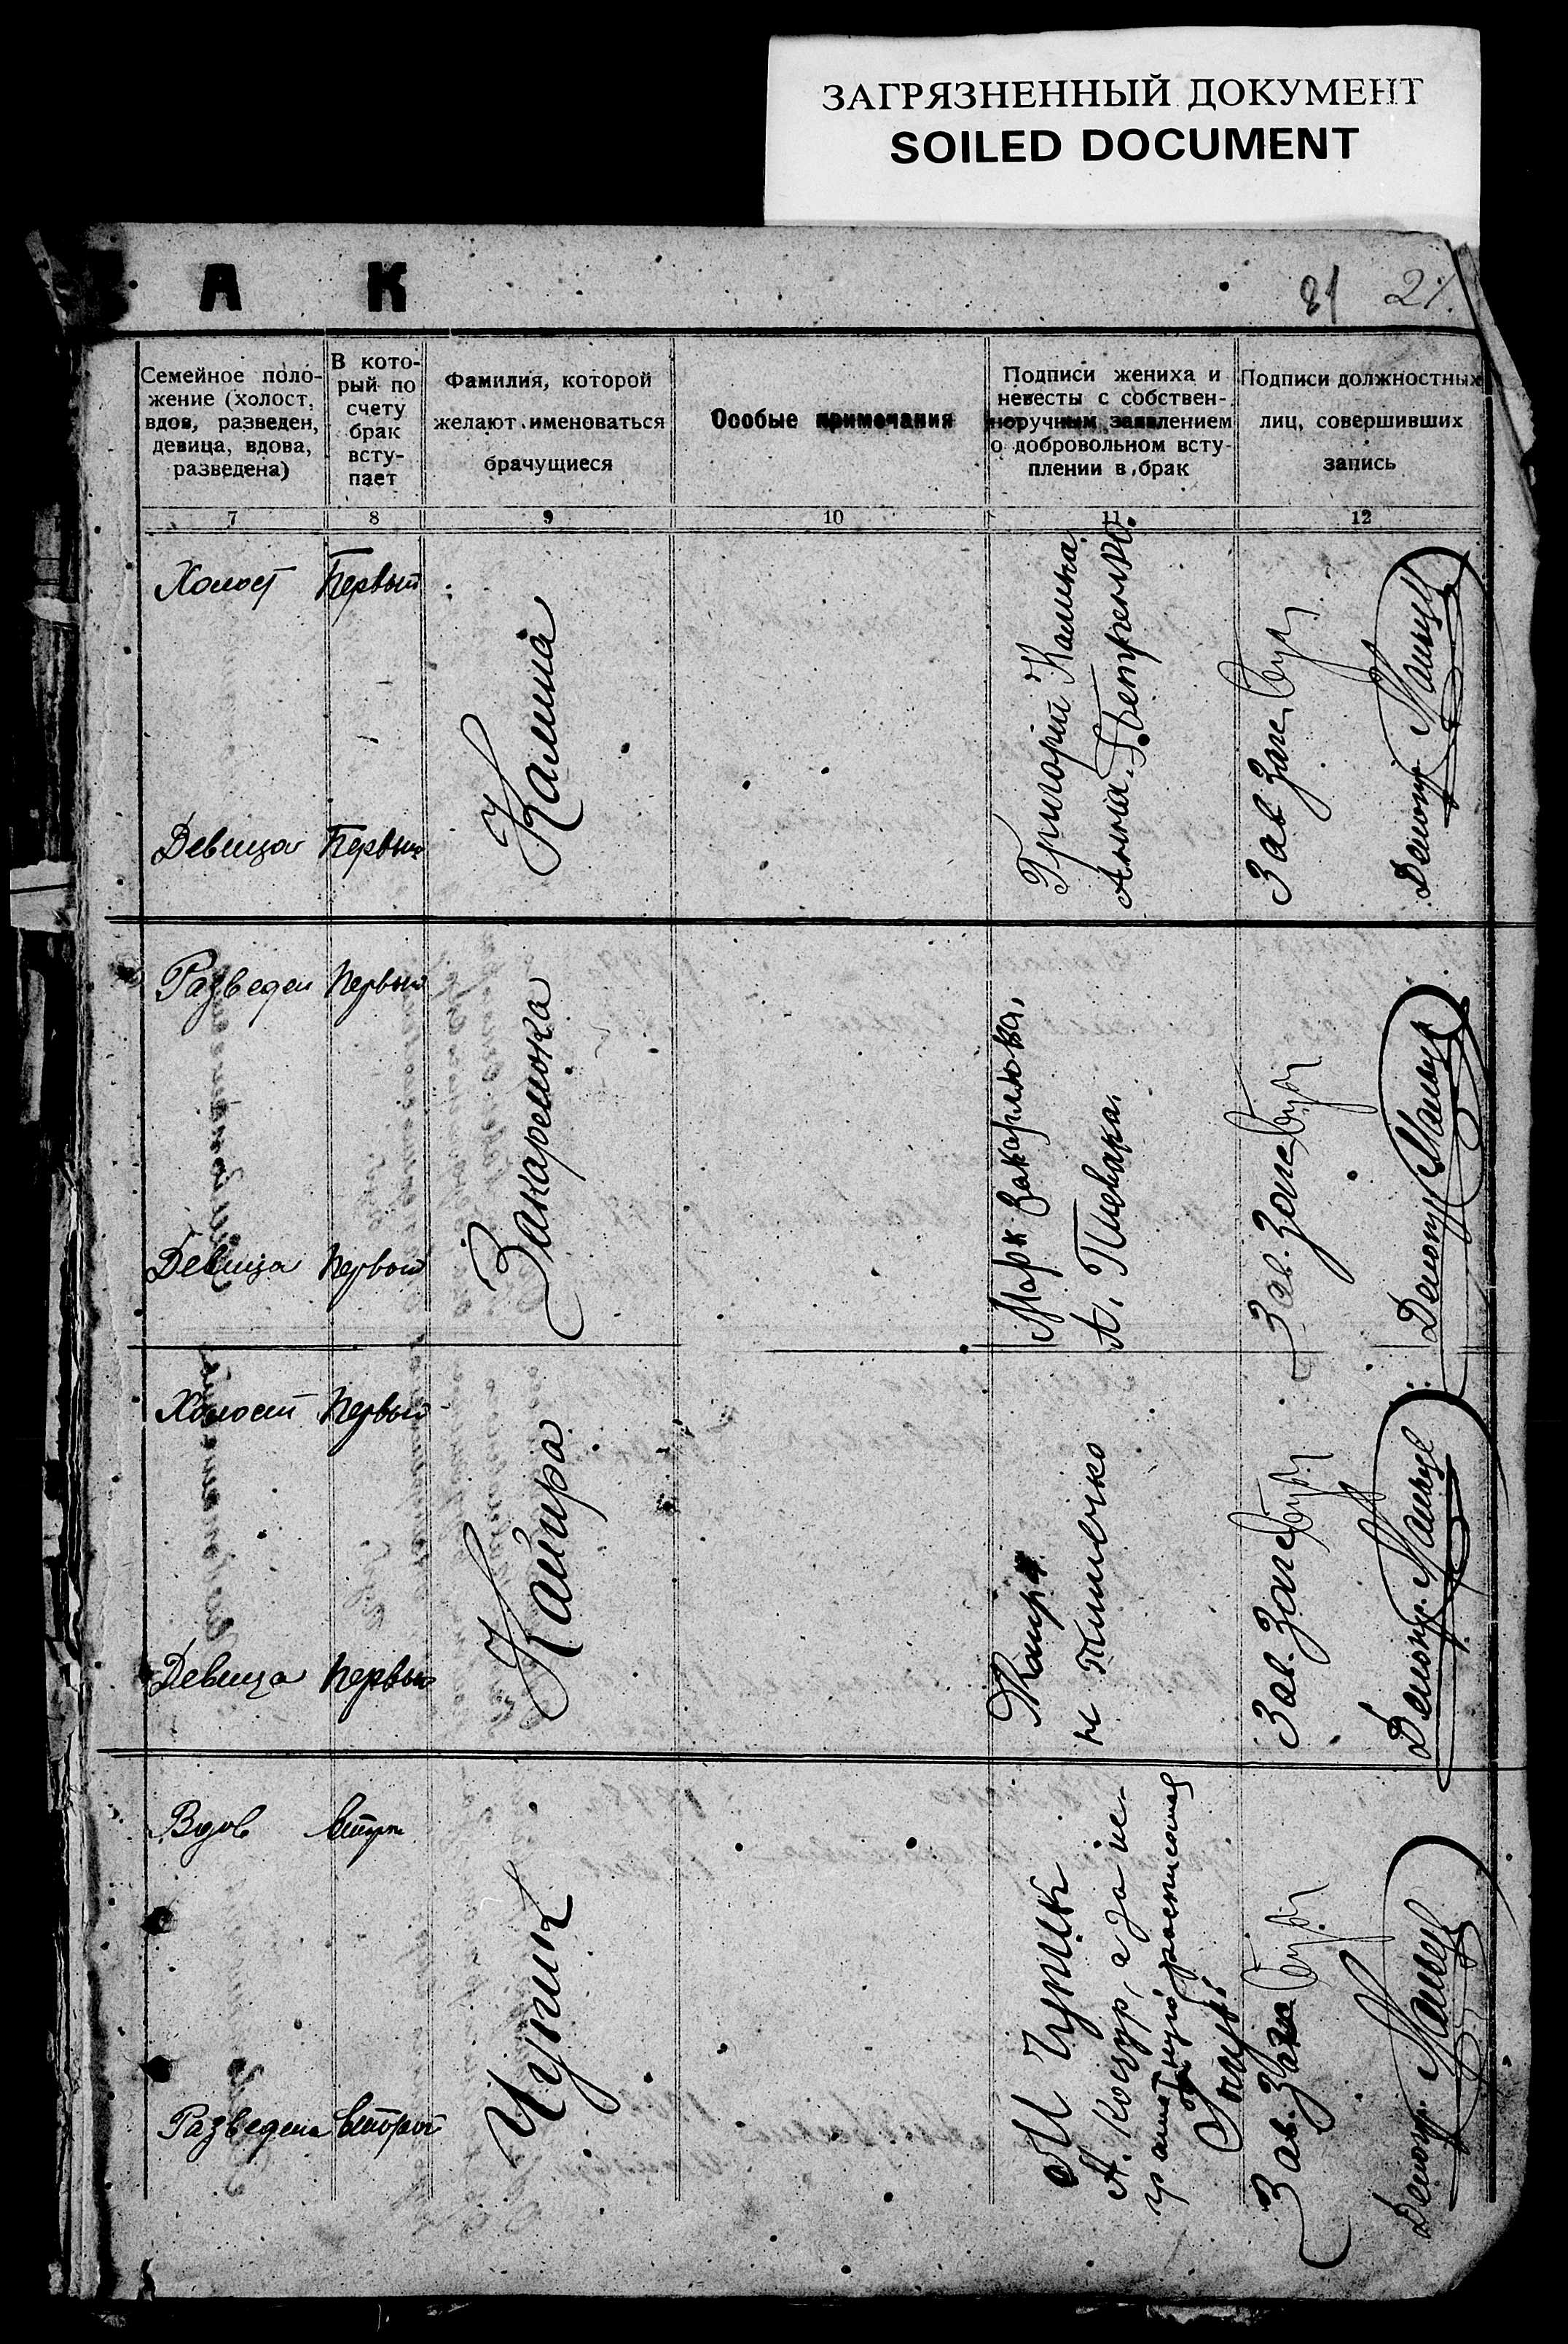 ЗАГРЯЗНЕННЫЙ ДОКУМЕНТ
SOILED DOCUMENT
А К
21
Семейное поло-
жение (холост,
вдов, разведен,
девица, вдова,
разведена)
В кото-
рый по
счету
брак
всту-
пает
Фамилия, которой
желают именоваться
брачущиеся
Особые примечания
Подписи жениха и
невесты с собствен-
норучным заявлением
о добровольном всту-
плении в брак
Подписи должностных
лиц, совершивших
запись
7 8 9 10 11 12
Холост Первый
Девица Первый
Калина
Григорий Калина
Анна Петренко.
Зав Загс
Делопр
Разведен Первый
Девица Первый
Закарлюка
Марк Закарлюка.
А. Плевака.
Зав. Загс
Делопр
Холост Первый
Девица Первый
Каира
Каира
Тимечко
Зав. Загс
Делопр.
Вдов
Разведена Второй
Чупик
М Чупик
А. Коцур, а за не-
грамотную росписался
Коцур
Зав. Загс
Делопр.